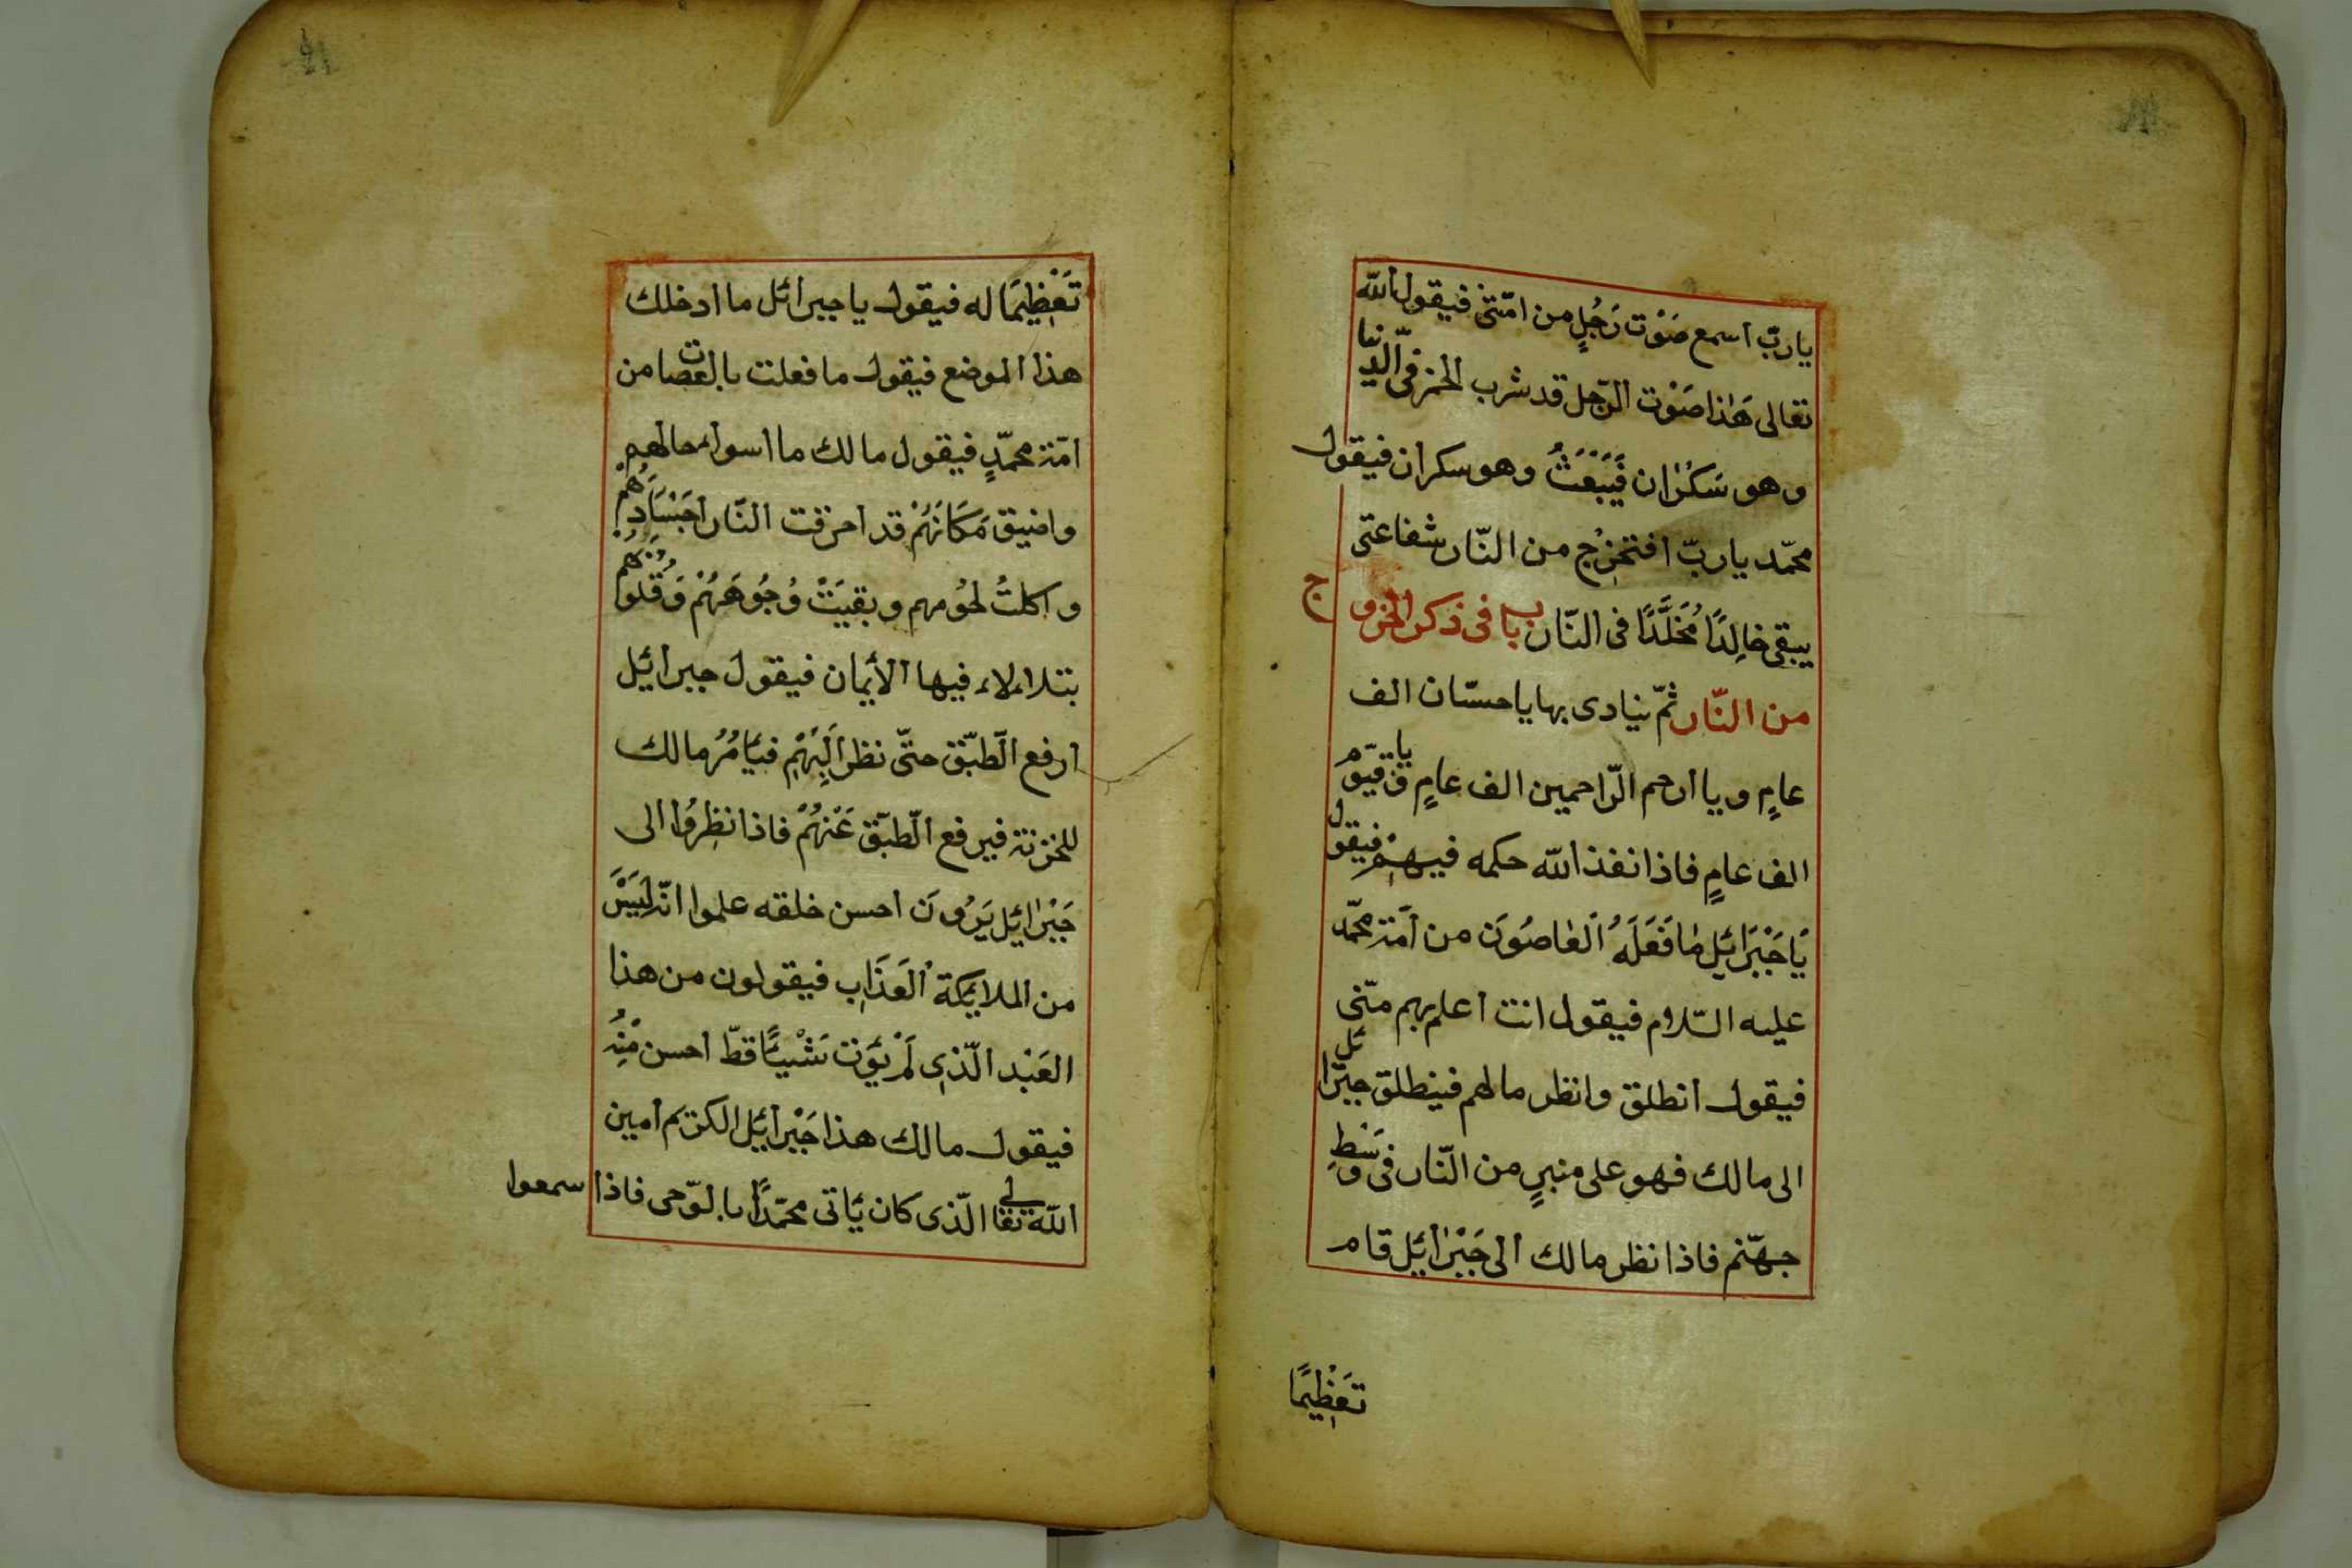 يا ربّ اسمع صَوْت رَجُلٍ من امّتى فيقول الله
تعالى هَٰذا صَوْت الرّجل قد شرب الخمر فى الدّنيا
وهو سَكْرٰان فَيُبْعَثُ وهو سكران فيقول
محمّد يا ربّ افتخرْج من النّار شفاعتى
يبقى خٰالِدًا مُخَلَّدًا فى النّار باب فى ذكر الخروج
من النّار ثمّ ينادى بها يا حسّان الف
عامٍ ويا ارحم الرّاحمين الف عامٍ يا قيّوم
الف عامٍ فاذا نفذ الله حكمه فيهِمْ فيقول
يَا جَبْرَائيل مٰا فَعَلَهُ اَلعٰاصُوَن من اُمّة محمّد
عليه السّلام فيقول انت اعلم بهم منّى
فيقول انطلق وانظر ما لهم فينطلق جبرائل
الى مالك فهو على منبرٍ من النّار فى وَسْطِ
جهنّم فاذا نظر مالك الى جَبْرٰائيل قام
تَعْظِيمًا
تَعْظِيمًا له فيقول يا جبرائل ما ادخلك
هذا الموضع فيقول ما فعلت بالعصات من
امّة محمّدٍ فيقول مالك ما اسوا حالهم
واضيق مَكَانَهُمْ قد احرقت النّار اجْسَادَهُم
واكلتْ لحُومهم وبقيَتْ وُجُوهَهُمْ وَقُلُوبُهُم
بتلاءلاء فيها الأيمان فيقول جبرائيل
ارفع الطّبّق حتّى نظر اَلِيْهِمْ فيَأمُرُ مالك
للخزنة فيرفع الطّبّق عَنْهُمْ فاذا نظِرُوا الى
جَبْرٰائيل يَرَوْنَ احسن خلقه علموا انّه لَيْسَ
من الملايكة اَلعَذَاب فيقولون من هذا
العَبْد الّذى لَمْ يؤت شَيْئًا قطّ احسن مِنْهُ
فيقول مالك هذا جَبْرائيل الكريم امين
الله تعالى الّذى كان يَأتى محمّدًا بالوّحى فاذا سمعوا